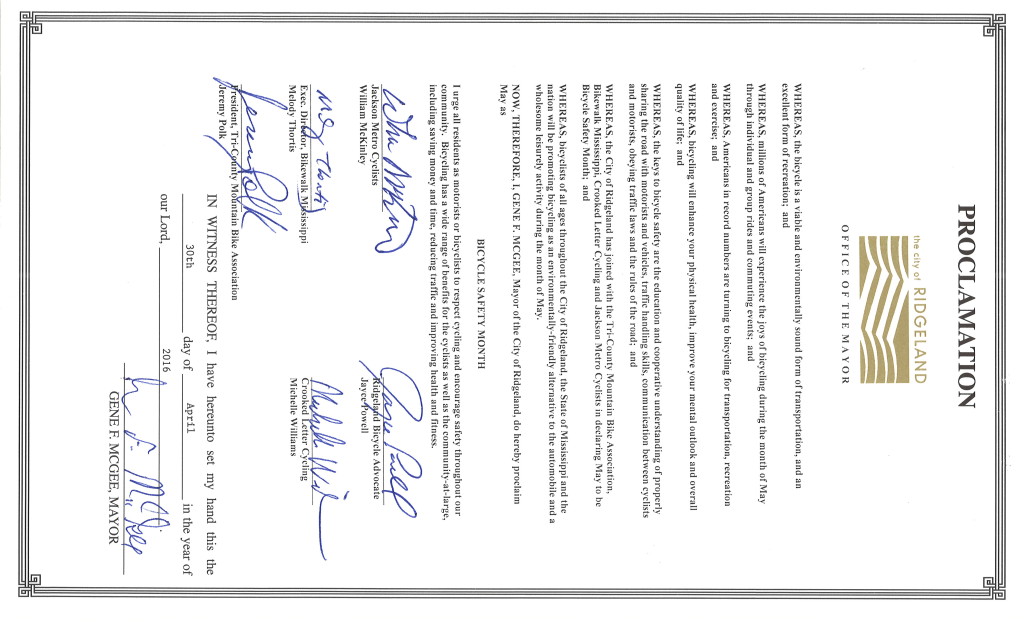 PROCLAMATION
the city of RIDGELAND
OFFICE OF THE MAYOR
WHEREAS, the bicycle is a viable and environmentally sound form of transportation, and an
excellent form of recreation; and
WHEREAS, millions of Americans will experience the joys of bicycling during the month of May
through individual and group rides and commuting events; and
WHEREAS, Americans in record numbers are turning to bicycling for transportation, recreation
and exercise; and
WHEREAS, bicycling will enhance your physical health, improve your mental outlook and overall
quality of life; and
WHEREAS, the keys to bicycle safety are the education and cooperative understanding of properly
sharing the road with motorists and vehicles, traffic handling skills, communication between cyclists
and motorists, obeying traffic laws and the rules of the road; and
WHEREAS, the City of Ridgeland has joined with the Tri-County Mountain Bike Association,
Bikewalk Mississippi, Crooked Letter Cycling and Jackson Metro Cyclists in declaring May to be
Bicycle Safety Month; and
WHEREAS, bicyclists of all ages throughout the City of Ridgeland, the State of Mississippi and the
nation will be promoting bicycling as an environmentally-friendly alternative to the automobile and a
wholesome leisurely activity during the month of May.
NOW, THEREFORE, I, GENE F. MCGEE, Mayor of the City of Ridgeland, do hereby proclaim
May as
BICYCLE SAFETY MONTH
I urge all residents as motorists or bicyclists to respect cycling and encourage safety throughout our
community. Bicycling has a wide range of benefits for the cyclists as well as the community-at-large,
including saving money and time, reducing traffic and improving health and fitness.
Jackson Metro Cyclists
William McKinley
Jayce Powell
Ridgeland Bicycle Advocate
Jayce Powell
Exec. Director, Bikewalk Mississippi
Melody Thortis
Crooked Letter Cycling
Michelle Willians
Jeremy Polk
President, Tri-County Mountain Bike Association
Jeremy Polk
IN WITNESS THEREOF, I have hereunto set my hand this the
30th day of April in the year of
our Lord, 2016
GENE F. MCGEE, MAYOR